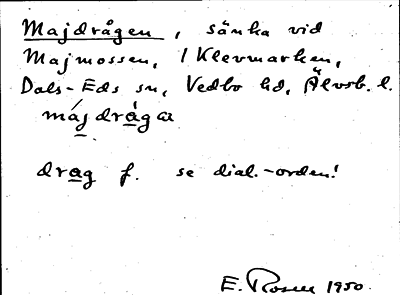 Majdrågen, sänka vid
Majmossen, i Klevmarken,
Dals-Eds sn, Vedbo hd, Älvsb. l.
májdrága
drag f. se dial.-orden!
E. Rosen 1950.